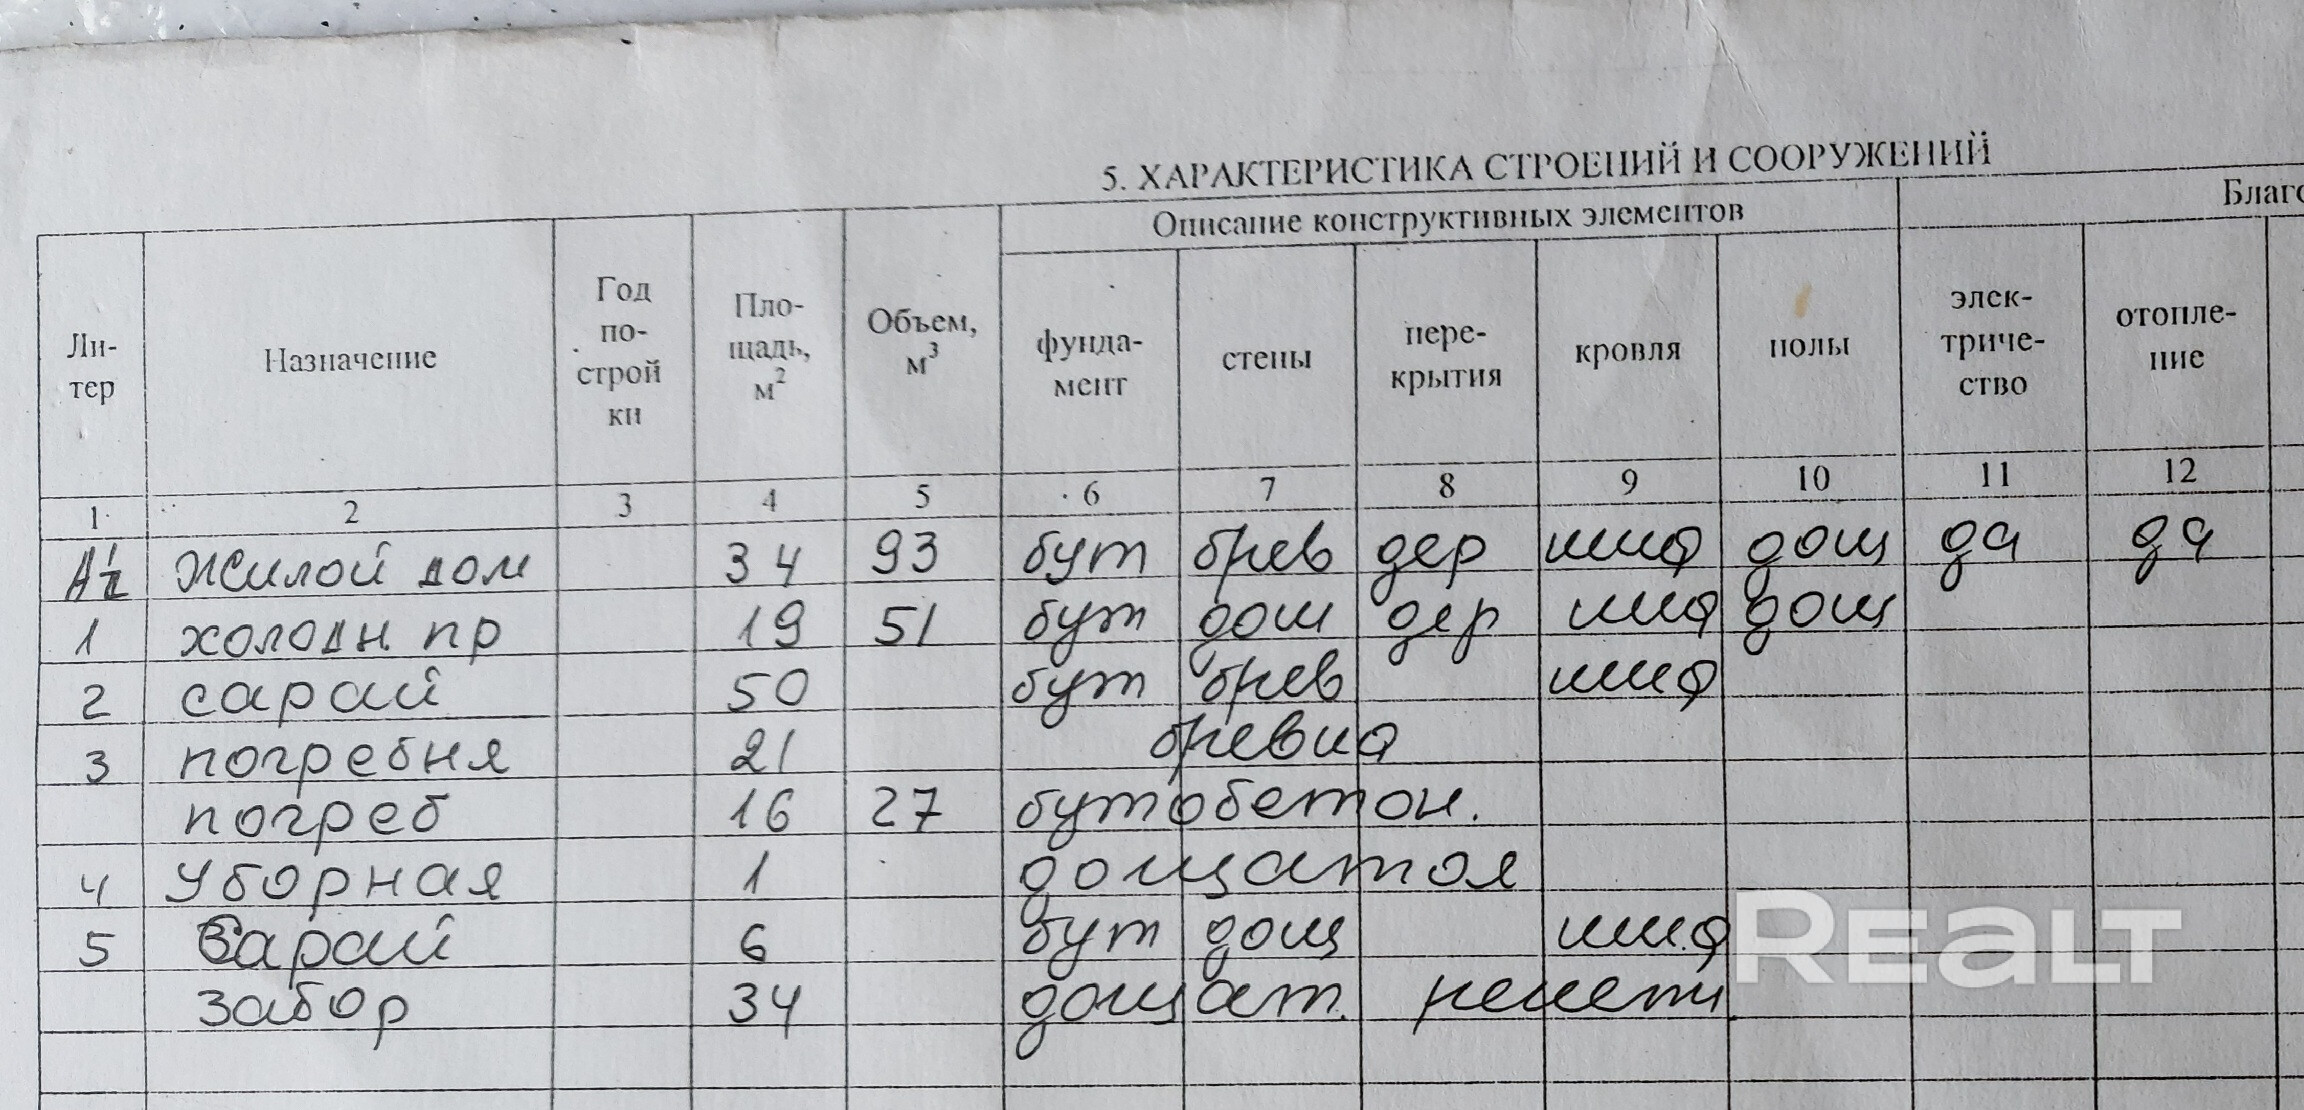 5. ХАРАКТЕРИСТИКА СТРОЕНИЙ И СООРУЖЕНИЙ
Ли-
тер
Назначение
Год
по-
строй
ки
Пло-
щадь,
м²
Объем,
м³
Описание конструктивных элементов
фунда-
мент
стены
пере-
крытия
кровля
полы
Благо
элек-
триче-
ство
отопле-
ние
1 2 3 4 5 6 7 8 9 10 11 12
Жилой дом 34 93 бут брев дер шиф дощ да да
1 холодн пр 19 51 бут дощ дер шиф дощ
2 сарай 50 бут брев шиф
3 погребня 21
погреб 16 27 бутобетон.
4 Уборная 1 дощатоя
5 Сарай 6 бут дощ шиф
забор 34 дощат. решетч
REALT